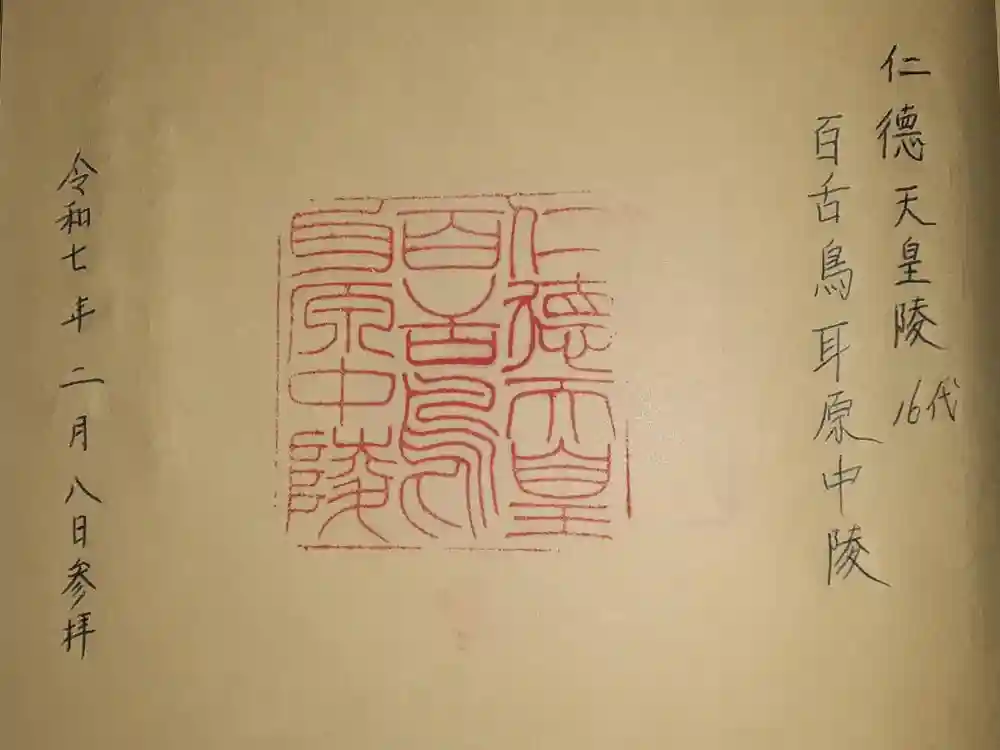 仁徳天皇陵 16代
百舌鳥耳原中陵
仁徳天皇
百舌鳥
耳原中陵
令和七年二月八日参拝